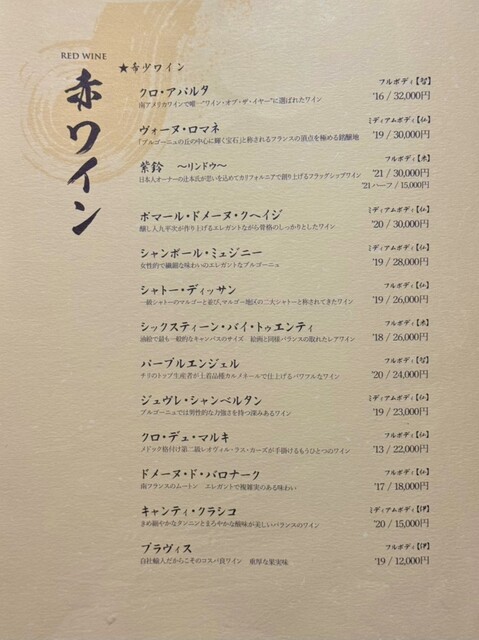 RED WINE
赤ワイン
★希少ワイン
クロ・アパルタ
フルボディ【智】
南アメリカワインで唯一"ワイン・オブ・ザ・イヤー"に選ばれたワイン
'16 / 32,000円
ヴォーヌ・ロマネ
ミディアムボディ【仏】
「ブルゴーニュの丘の中心に輝く宝石」と称されるフランスの頂点を極める銘醸地
'19 / 30,000円
紫鈴 ～リンドウ～
フルボディ【米】
日本人オーナーの辻本氏が思いを込めてカリフォルニアで創り上げるフラッグシップワイン
'21 / 30,000円
'21 ハーフ / 15,000円
ポマール・ドメーヌ・クヘイジ
ミディアムボディ【仏】
醸し人九平次が作り上げるエレガントながら骨格のしっかりとしたワイン
'20 / 30,000円
シャンボール・ミュジニー
ミディアムボディ【仏】
女性的で繊細な味わいのエレガントなブルゴーニュ
'19 / 28,000円
シャトー・ディッサン
フルボディ【仏】
一級シャトーのマルゴーと並び、マルゴー地区の二大シャトーと称されてきたワイン
'19 / 26,000円
シックスティーン・バイ・トゥエンティ
フルボディ【米】
油絵で最も一般的なキャンバスのサイズ 絵画と同様バランスの取れたレアワイン
'18 / 26,000円
パープルエンジェル
フルボディ【智】
チリのトップ生産者が土着品種カルメネールで仕上げるパワフルなワイン
'20 / 24,000円
ジュヴレ・シャンベルタン
ミディアムボディ【仏】
ブルゴーニュでは男性的な力強さを持つ深みあるワイン
'19 / 23,000円
クロ・デュ・マルキ
フルボディ【仏】
メドック格付け第二級レオヴィル・ラス・カーズが手掛けるもうひとつのワイン
'13 / 22,000円
ドメーヌ・ド・バロナーク
フルボディ【仏】
南フランスのムートン エレガントで複雑実のある味わい
'17 / 18,000円
キャンティ・クラシコ
ミディアムボディ【伊】
きめ細やかなタンニンとまろやかな酸味が美しいバランスのワイン
'20 / 15,000円
ブラヴィス
フルボディ【伊】
自社輸入だからこそのコスパ良ワイン 重厚な果実味
'19 / 12,000円